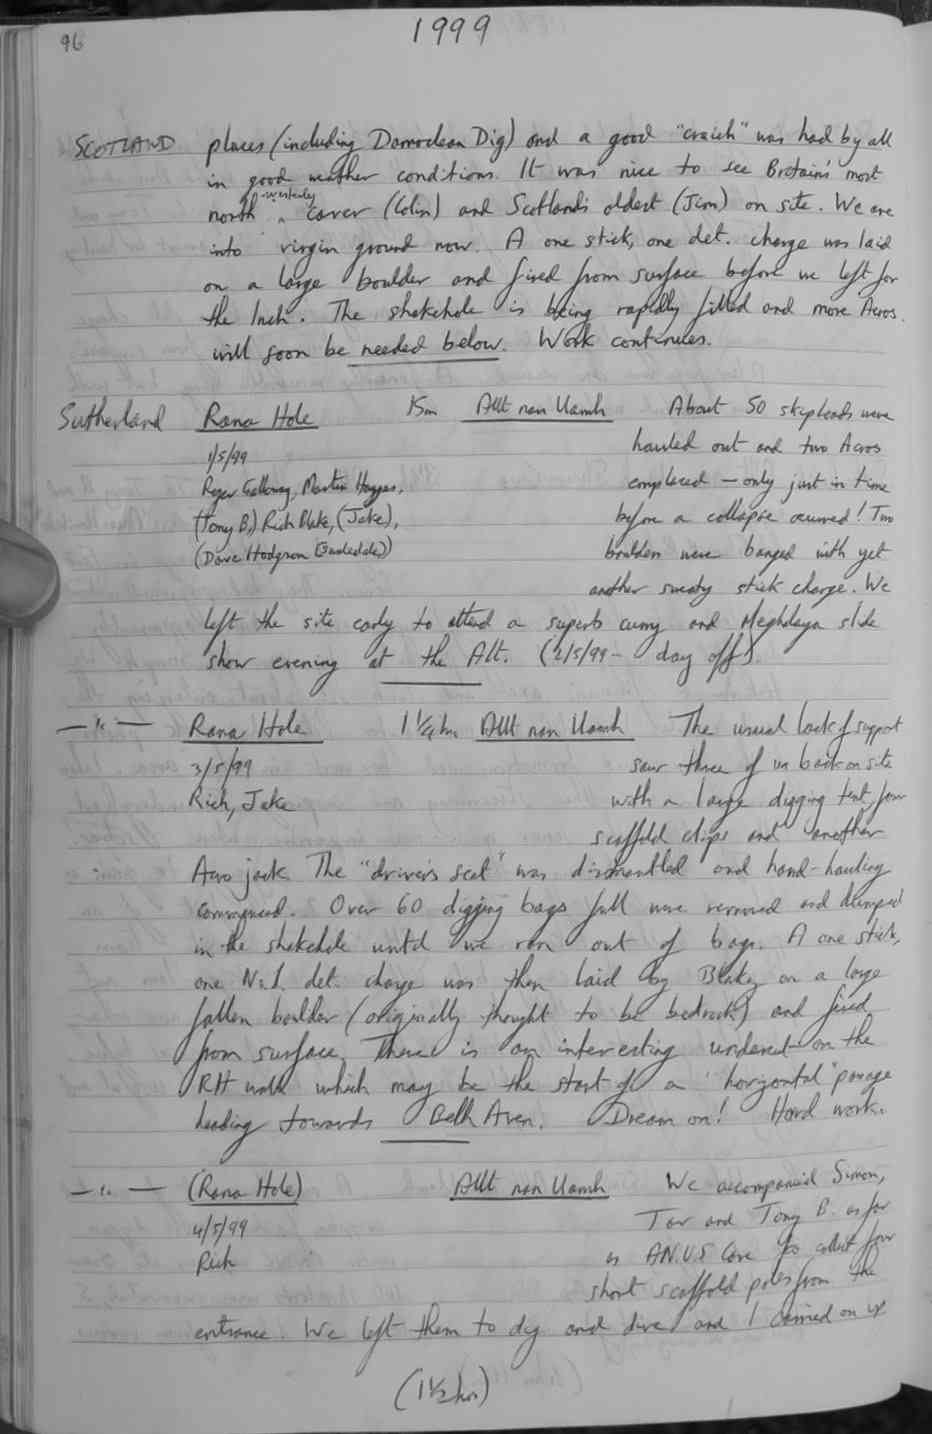 96
1999
SCOTLAND places (including Damoclean Dig) and a good "craich" was had by all
in good weather conditions. It was nice to see Britain's most
north-westerly caver (Colin) and Scotland's oldest (Jim) on site. We are
into virgin ground now. A one stick, one det. charge was laid
on a large boulder and fired from surface before we left for
the Inch. The shakehole is being rapidly filled and more Acros
will soon be needed below. Work continues.
Sutherland Rana Hole 15m Allt nan Uamh About 50 skiploads were
hauled out and two Acros
1/5/99
emplaced - only just in time
Roger Galloway, Martin Hayes,
before a collapse occurred! Two
(Tony B.) Rich Blake, (Jake),
boulders were banged with yet
(Dave Hodgson)
another sweaty stick charge. We
left the site early to attend a superb curry and Meghalaya slide
show evening at the Alt. (2/5/99 - day off)
—"— Rana Hole 1¼hr. Allt nan Uamh The usual lack of support
3/5/99
saw three of us back on site
Rich, Jake
with a large digging tent, four
scaffold clips and another
Acro jack. The "driver's seat" was dismantled and hand-hauling
commenced. Over 60 digging bags full were removed and dumped
in the shakehole until we ran out of bags. A one stick,
one det. charge was then laid by Blakey on a large
fallen boulder (originally thought to be bedrock) and fired
from surface. There is an interesting undercut on the
RH wall which may be the start of a "horizontal" passage
heading towards Belh Aven. Dream on! Hard work.
—"— (Rana Hole) Allt nan Uamh We accompanied Simon,
4/5/99
Tav and Tony B. as far
Rich
as A.N.U.S Cave to collect four
short scaffold poles from the
entrance. We left them to dig and dive and I carried on up
(1½hrs)